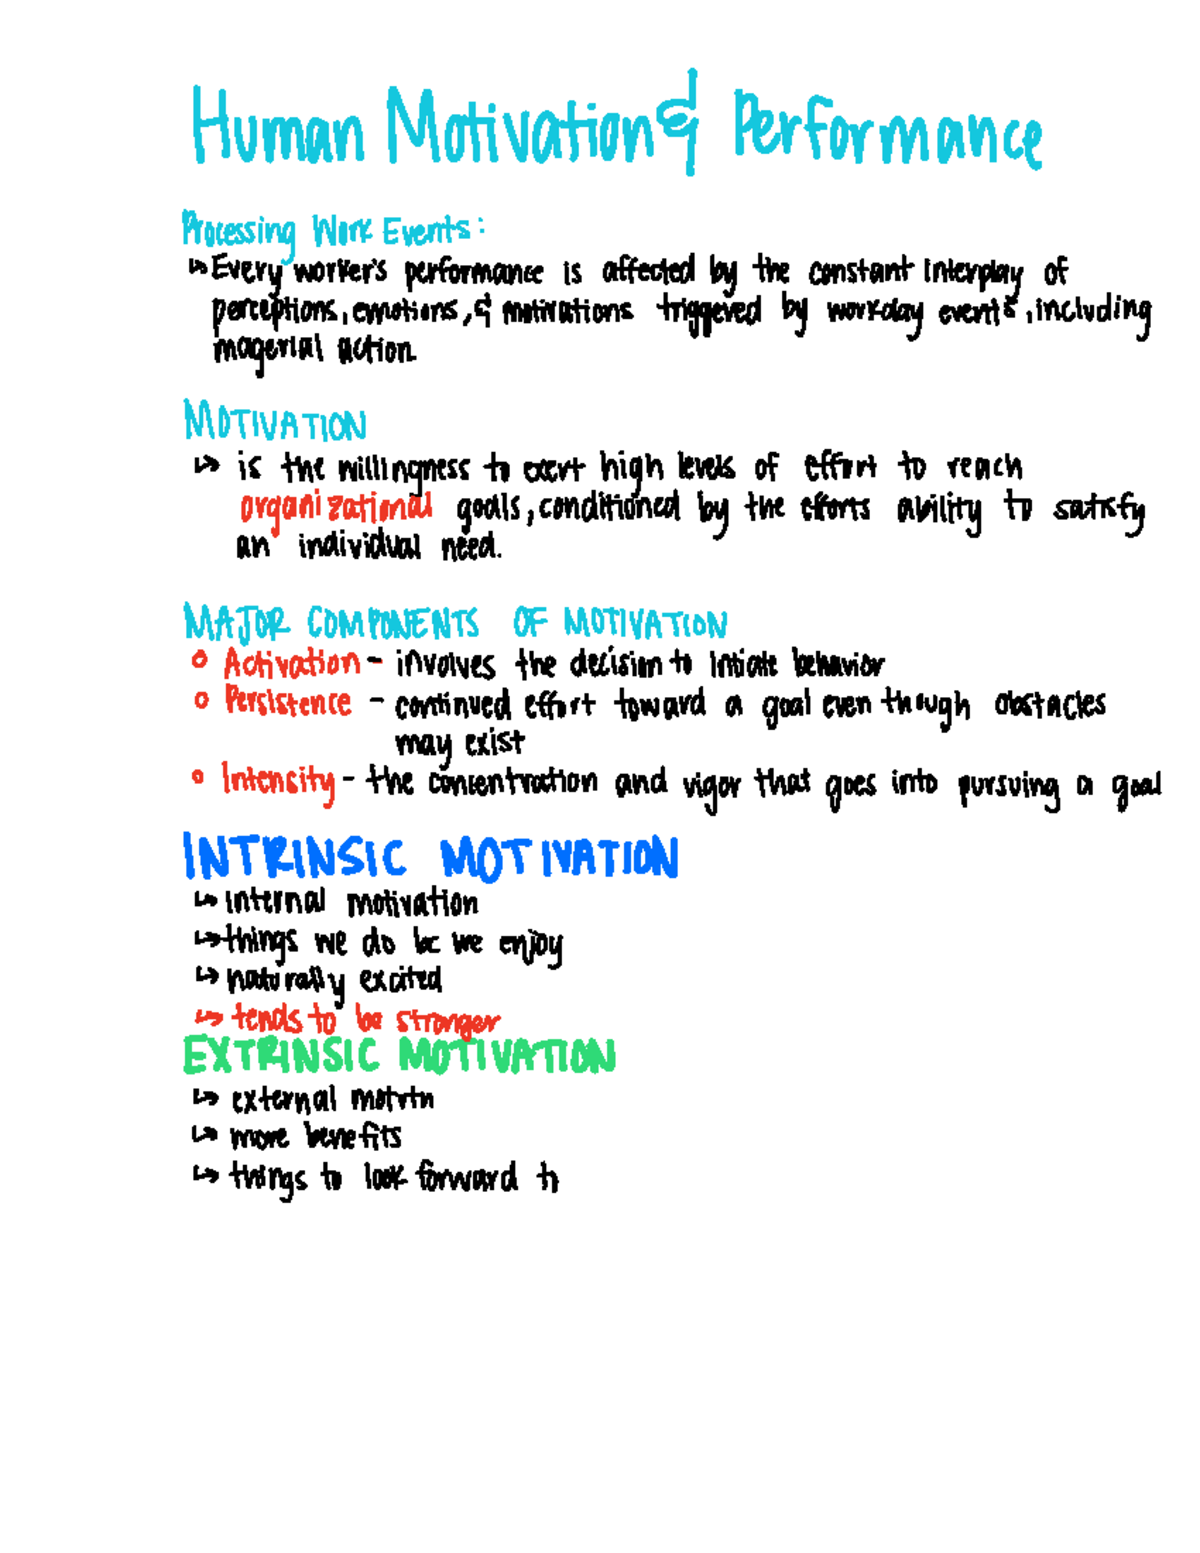 Human Motivation & Performance
Processing Work Events:
↳ Every worker's performance is affected by the constant interplay of
perceptions, emotions, & motivations triggered by workday events, including
magerial action
MOTIVATION
↳ is the willingness to exert high levels of effort to reach
organizational goals, conditioned by the efforts ability to satisfy
an individual need.
MAJOR COMPONENTS OF MOTIVATION
○ Activation - involves the decision to intiate behavior
○ Persistence - continued effort toward a goal even though obstacles
may exist
○ Intensity - the concentration and vigor that goes into pursuing a goal
INTRINSIC MOTIVATION
↳ internal motivation
↳ things we do bc we enjoy
↳ naturally excited
↳ tends to be stronger
EXTRINSIC MOTIVATION
↳ external
↳ more benefits
↳ things to look forward to